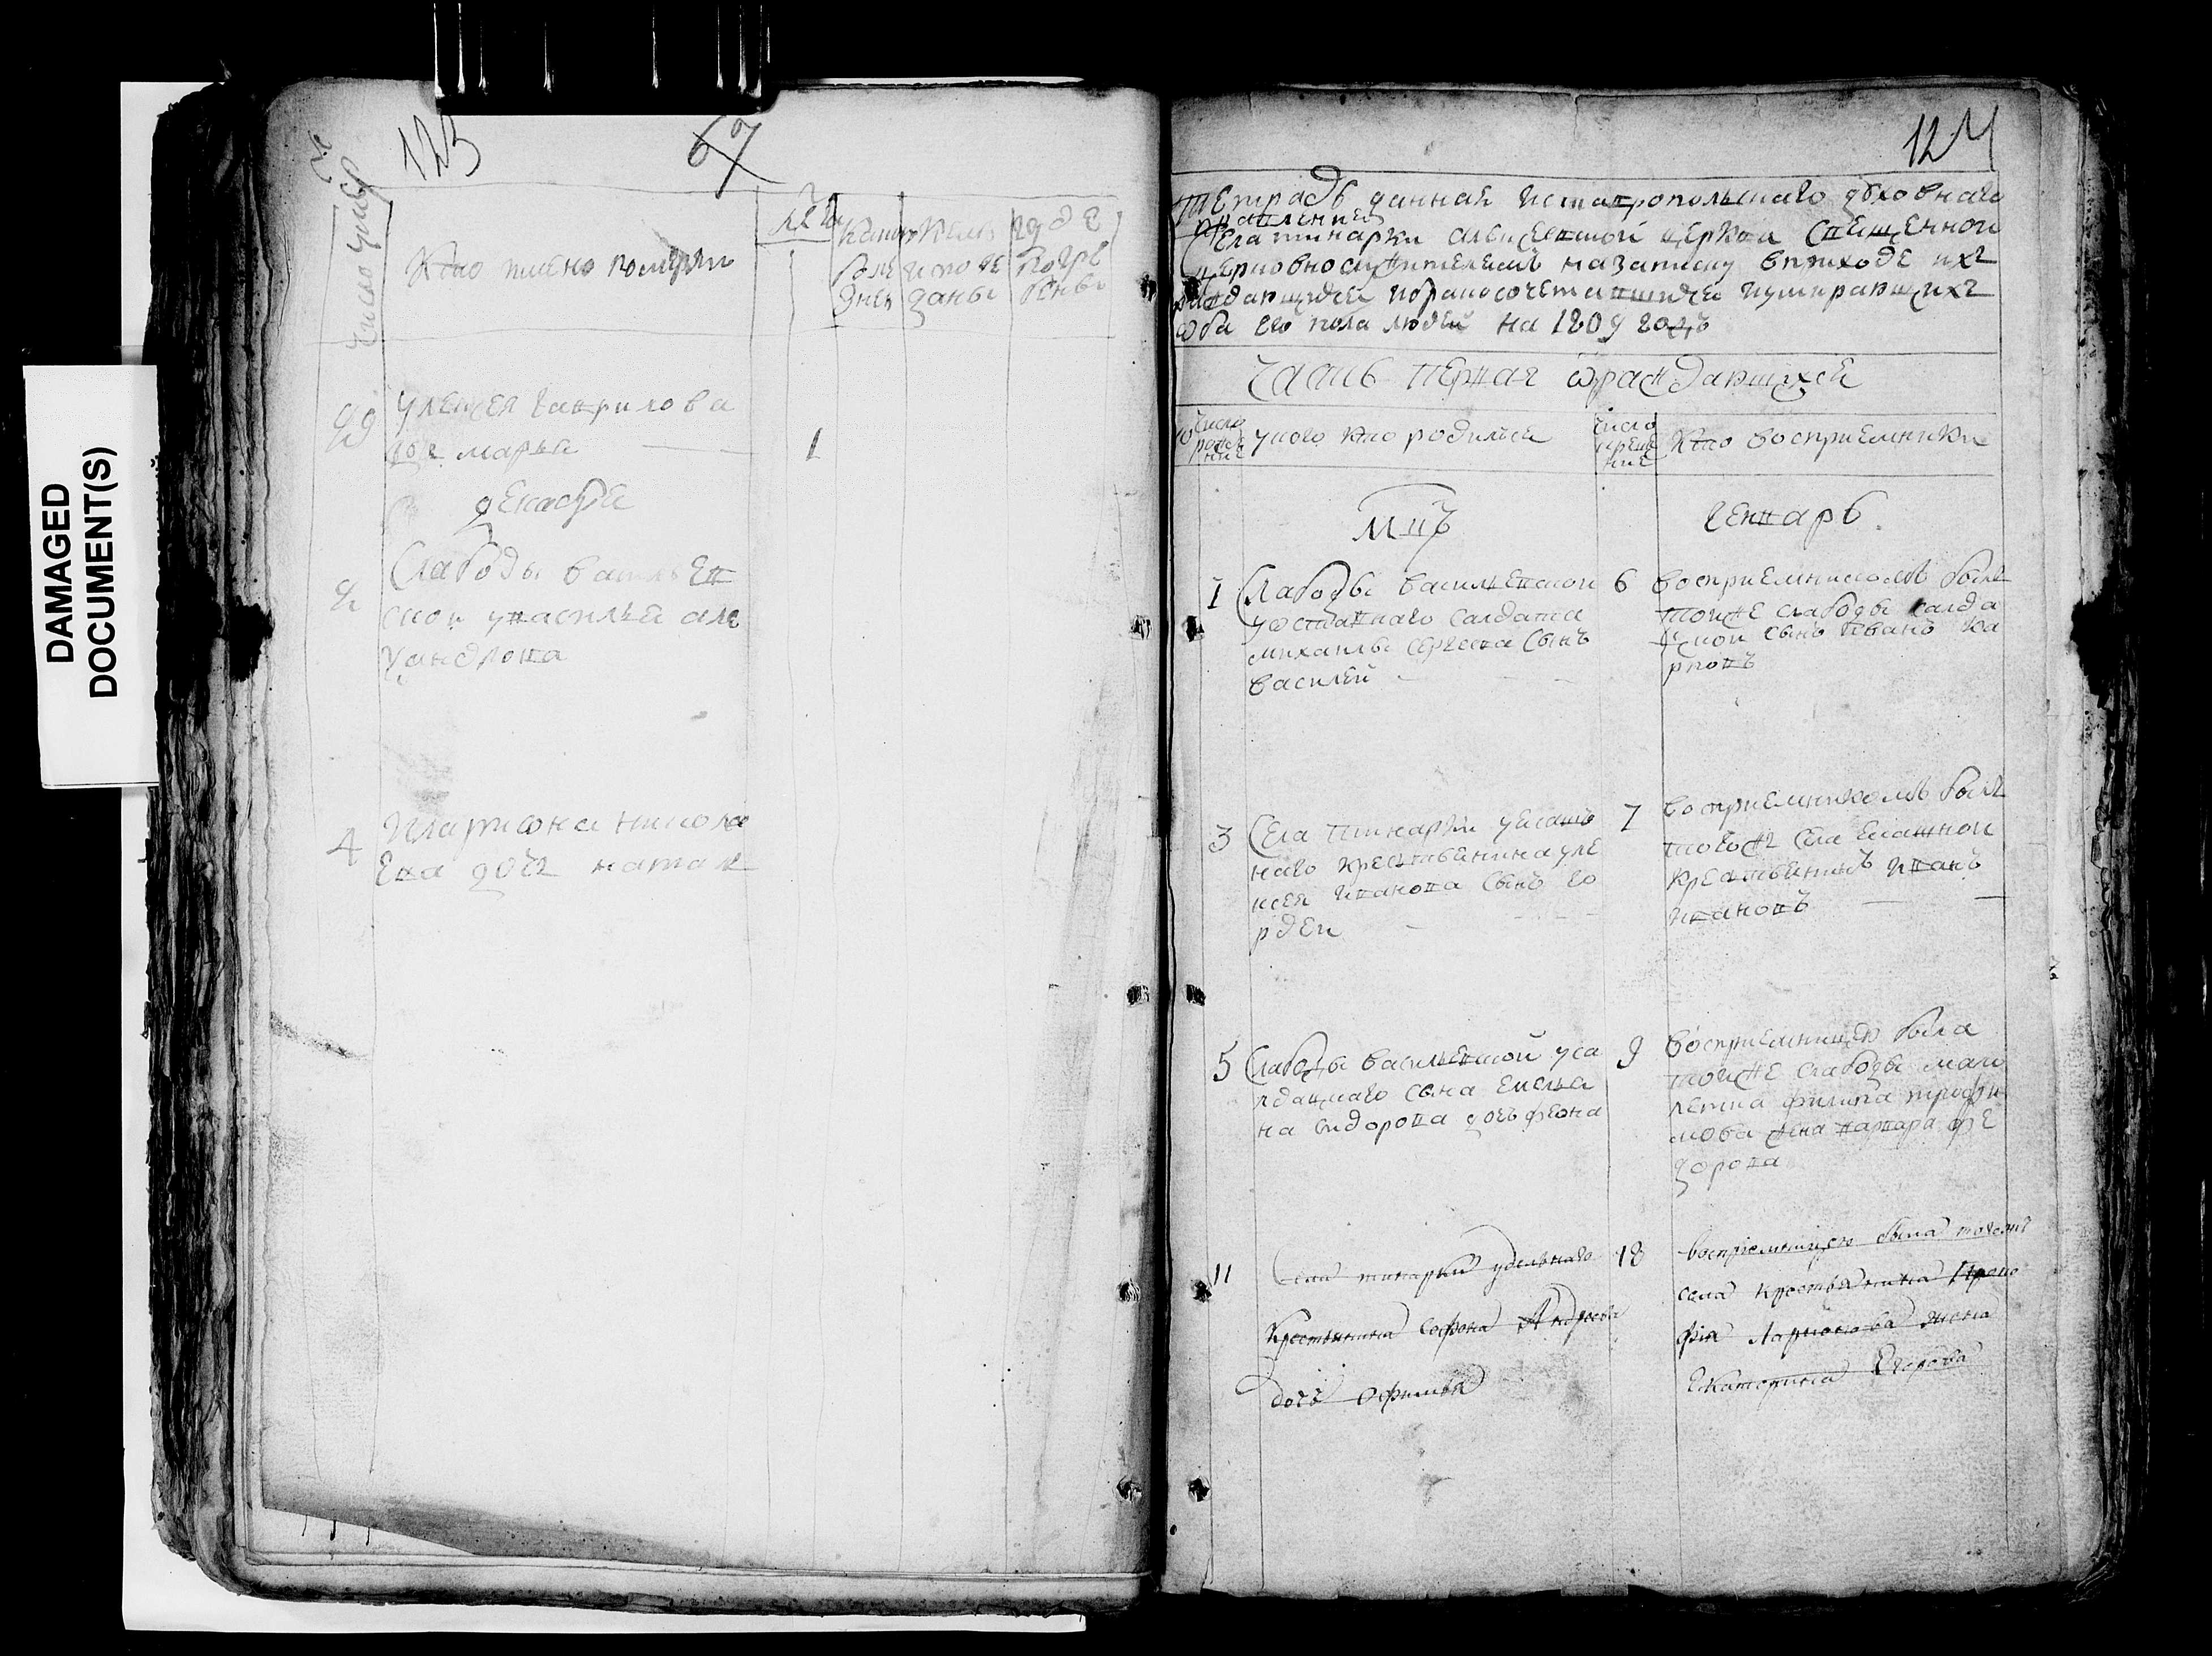 DAMAGED
DOCUMENT(S)
123
67
Число умер
Кто имено померли
Лета
Какою
боле
знею
Кемъ
испове
даны
где
погре
бены
29
Улексея гаврилова
дочь марья
1
декабря
2
Слабоды василев
ской у василья але
ѯандрова
4
Илариона никола
ева дочь наталья
124
Тетрадь данная изставропольскаго духовнаго
правления
Села тинарки алексеевской церкви священно и
церковнослужителемъ назаписку вприходе ихъ
раждающихся ибракосочетавшихся иумирающихъ
обоего пола людей на 1809 годъ
Часть первая ѿ раждающихся
число
рожде
ние
укого кто родился
число
креще
ние
Кто восприемники
Мцъ
генварь
1
Слабоды василевской
уоставнаго салдата
михаилы сергеева сынъ
василей
6
восприемникомъ былъ
тоиже слабоды салда
цкой сынъ иванъ ка
рповъ
3
Села тинарки уясаш
наго крестьенина але
ксея иванова сынъ го
рдеи
7
восприемникомъ былъ
тогожъ села ясашной
крестьенинъ иванъ
ивановъ
5
Слабоды василевской уса
лдацкаго сына емелья
на сидорова дочь феона
9
восприемницею была
тоиже слабоды мало
летка филипа трофи
мова жена варвара фе
дорова
11
Села тинарки удельнаго
Крестьянина Софона Андреева
дочь Офимья
18
восприемницею была тогожъ
села крестьянина Проко
фия Ларионова жена
Екатерина Егорова